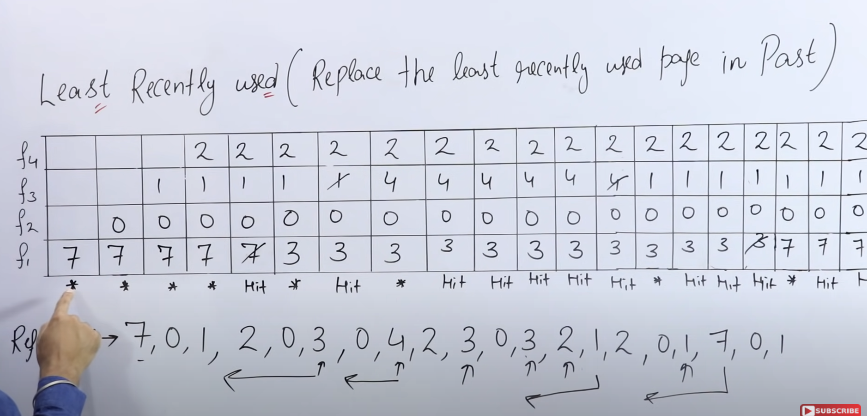 Least Recently used (Replace the least recently used page in Past)
f4 2 2 2 2 2 2 2 2 2 2 2 2 2 2 2 2 2
f3 1 1 1 1 1 4 4 4 4 4 4 1 1 1 1 1 1 1
f2 0 0 0 0 0 0 0 0 0 0 0 0 0 0 0 0 0 0 0
f1 7 7 7 7 7 3 3 3 3 3 3 3 3 3 3 3 3 7 7 7
* * * * Hit * Hit * Hit Hit Hit Hit Hit * Hit Hit Hit * Hit H
Ref → 7, 0, 1, 2, 0, 3, 0, 4, 2, 3, 0, 3, 2, 1, 2, 0, 1, 7, 0, 1
SUBSCRIBE